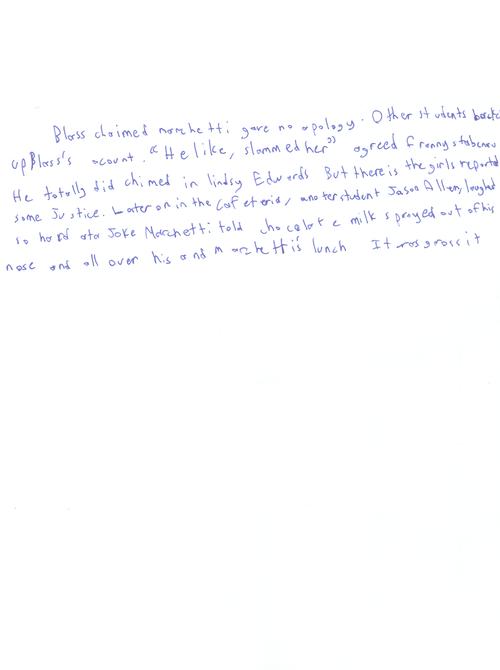 Blass claimed marchetti gave no apology. Other students backed
up Blass's acount. "He like, slammed her" agreed frannystabeneu
He totally did chimed in lindsy Edwards But there is the girls reported
some Justice. Later on in the cafeteria, anoterstudent Jason Allen, laughed
so hard ata Joke Marchetti told chocolate milk sprayed out of his
nose and all over his and marchetti's lunch It was gross it